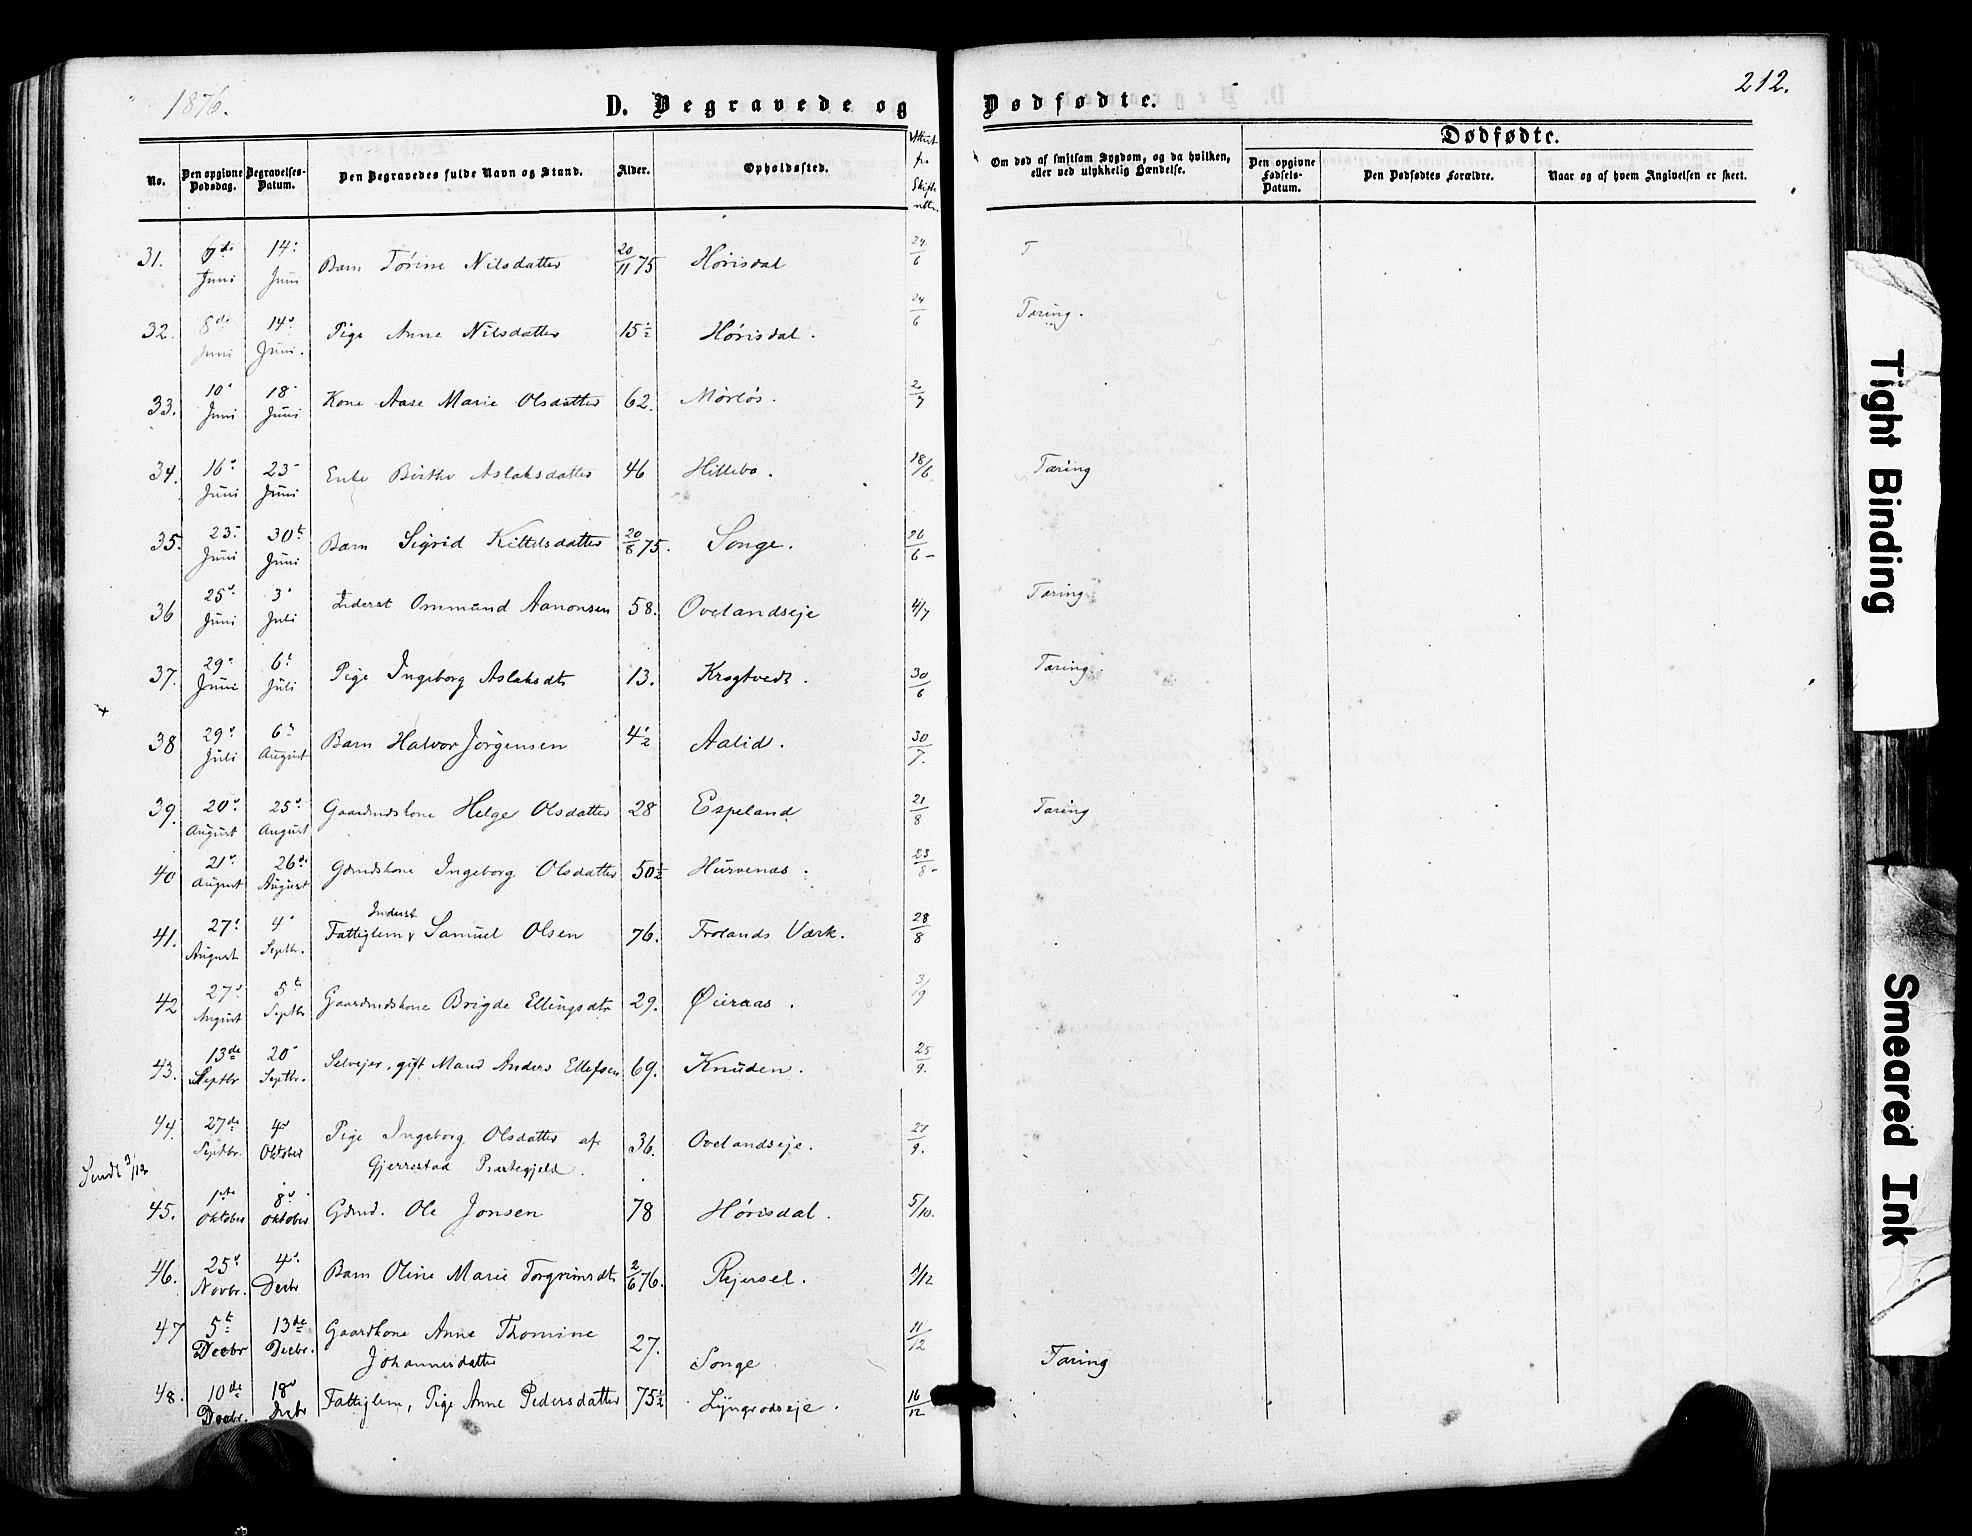 1876.
D. Begravede og Dødfødte.
212.
No. Den opgivne Dødsdag. Begravelses-Datum. Den Begravedes fulde Navn og Stand. Alder. Opholdssted. Attest fra Skifteretten.
Om død af smitsom Sygdom, og da hvilken, eller ved ulykkelig Hændelse.
Dødfødte.
Den opgivne Fødsels-Datum. Den Dødfødtes Forældre. Naar og af hvem Angivelsen er skeet.
31. 6de Juni 14: Juni Barn Tórine Nilsdatter 20/11 75 Hórisdal 24/6 T
32. 8de Juni 14d Juni. Pige Anne Nilsdatter 15½ Hórisdal. 24/6 Tæring.
33. 10d Juni 18- Juni Kone Aase Marie Olsdatter 62. Mórlós. 2/7
34. 16d Juni 23- Juni Enke Birthe Aslaksdatter 46 Hillebo. 18/6 Tæring
35. 23- Juni 30t Juni Barn Sigrid Kittilsdatter 20/8 75. Songe. 26/6-
36 25d Juni 3d Juli Inderst Ommund Aanonsen 58. Ovelandseje 4/7 Tæring
37. 29d Juni 6t Juli Pige Ingeborg Aslaksdt 13. Krogtvedt. 30/6 Tæring.
38 29d Juli 6d August Barn Halvor Jórgensen 4½ Aalid. 30/7.
39. 20d August 25d August Gaardmdskone Helge Olsdatter 28 Espeland 21/8 Tæring
40 21d August 26de August Gdmdskone Ingeborg Olsdatter 50½ Hurvenæs. 23/8-
Inderst
41. 27d August 4d Septbr. Fattiglem, Samuel Olsen 76. Frolands Værk. 28/8
42 27d August 5t Septbr Gaardmdskone Brigde Ellingsdtr 29. Øieraas. 3/9
43. 13de Septbr 20d Septbr. Selvejer, gift Mand Anders Ellefsen 69. Knuden. 25/9.
44. 27de Septbr. 4d Oktober Pige Ingeborg Olsdatter af 36. Ovelandseje. 27/9.
Gjerrestad Præstegjeld.
Sendt 3/12
45. 1ste Oktober 8d Oktober Gdmd. Ole Jonsen 78 Hórisdal. 5/10.
46. 25d Novbr. 4d Decbr Barn Oline Marie Torgrimsdt 2/6 76. Rejersel. 1/12
47 5t Decbr 13de Decbr. Gaardkone Anne Thomine 27. Songe 11/12 Tæring
Johannesdatter
48. 10de Decbr. 18d Decbr Fattiglem, Pige Anne Pedersdatter 75½ Lyngrodseje. 16/12
Tight Binding
Smeared Ink